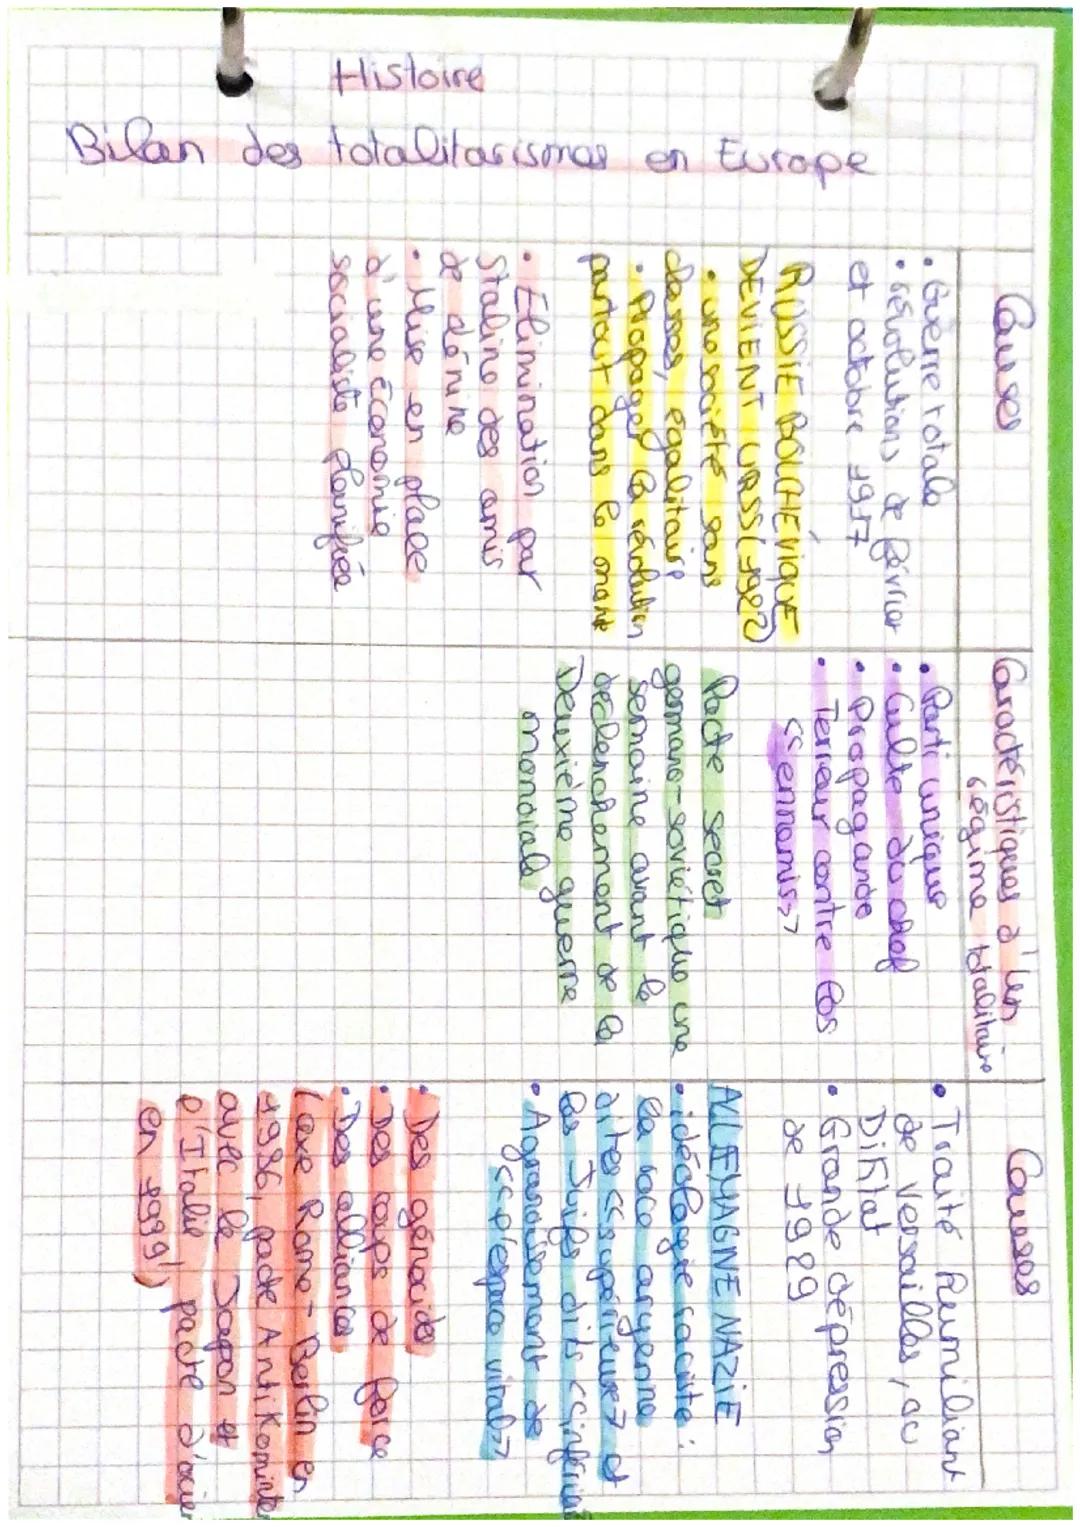 Histoire
Bilan des totalitarismes en Europe
Causes
• Guerre totale
• révolutions de février
et octobre 1917
RUSSIE BOLCHÉVIQUE
DEVIENT URSS (1922)
• une société sans
classes, égalitaire
• Propager la révolution
partout dans le monde
• Elimination par
Staline des amis
de Lénine
• Mise en place
d'une économie
socialiste planifiée
Caractéristiques d'un
régime totalitaire
• Parti unique
• Culte du chef
• Propagande
• Terreur contre les
<<ennemis>>
Pacte secret
germano-soviétique une
semaine avant le
déclenchement de la
Deuxième guerre
mondiale
Causes
• Traité humiliant
de versailles, ou
Diktat
• Grande dépression
de 1929
ALLEMAGNE NAZIE
• idéologie raciste :
la race aryenne
dites <<supérieure>> et
les Juifs dits <<inférieur
• Agrandissement de
<<l'espace vital>>
• Des génocides
• Des coups de force
• Des alliances
(axe Rome-Berlin en
1936, pacte Anti Kominter
avec le Japon et
l'Italie, pacte d'acier
en 1939)